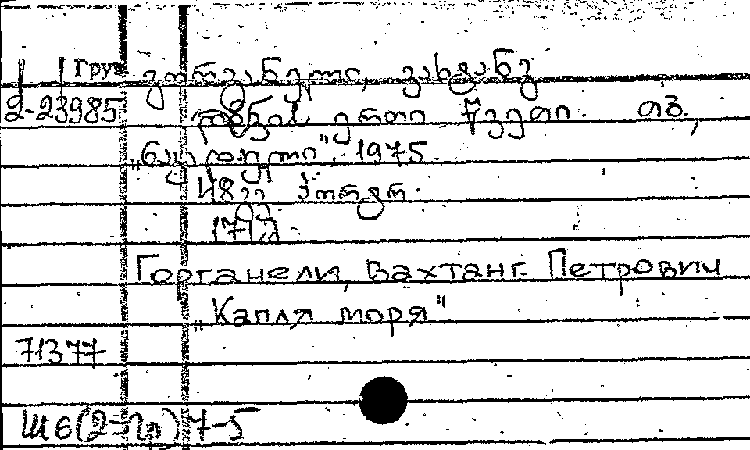 Груз გორგანელი, ვახტანგ
2-23985 ზღვის ერთი წვეთი. თბ.,
„ნაკადული", 1975.
48 გვ. პორტრ.
17 კ.
Горганели, Вахтанг Петрович
„Капля моря".
71377
Ш6(2=Гр)7-5